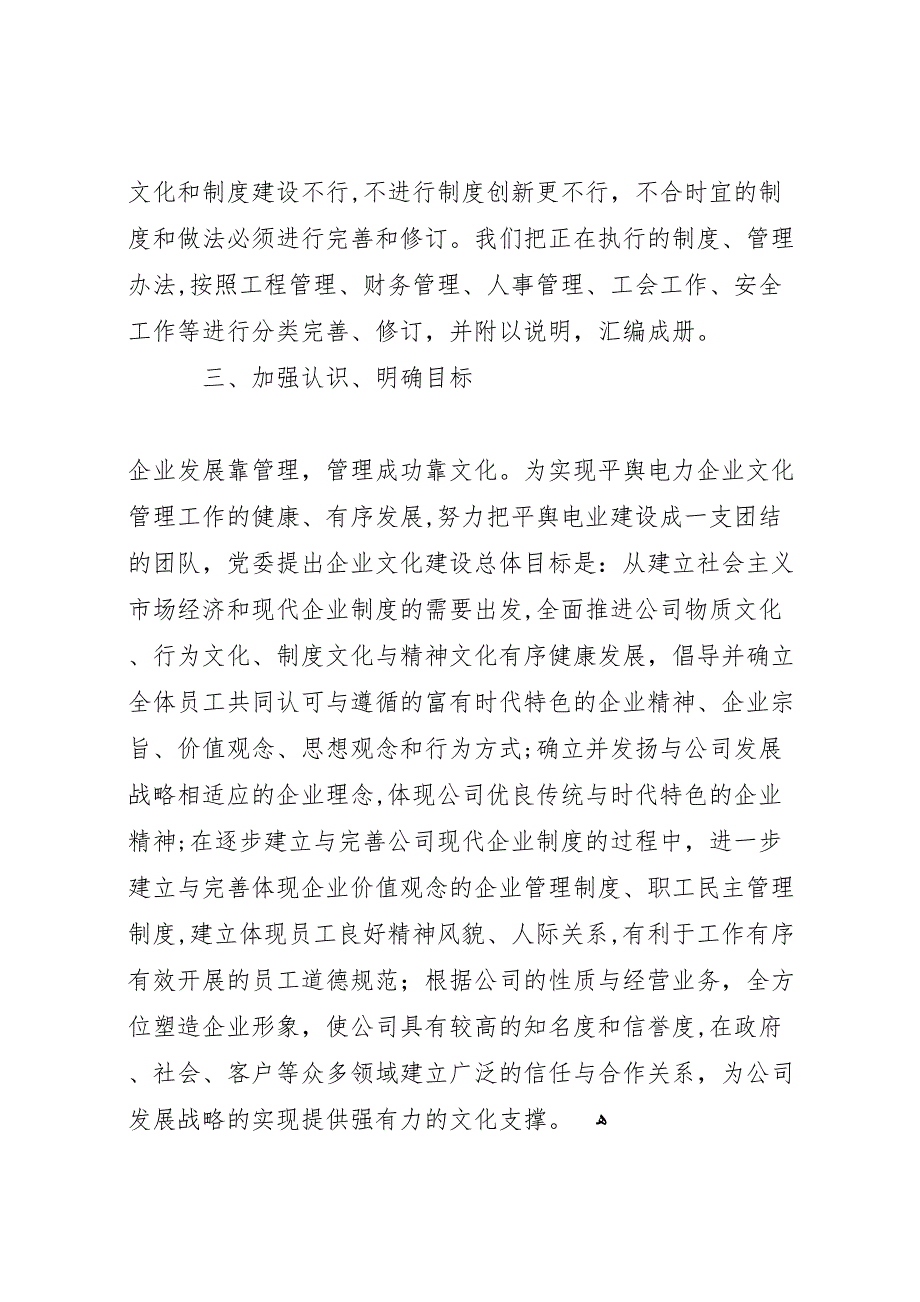 文化和制度建设不行,不进行制度创新更不行，不合时宜的制
度和做法必须进行完善和修订。我们把正在执行的制度、管理
办法,按照工程管理、财务管理、人事管理、工会工作、安全
工作等进行分类完善、修订，并附以说明，汇编成册。
三、加强认识、明确目标
企业发展靠管理，管理成功靠文化。为实现平舆电力企业文化
管理工作的健康、有序发展,努力把平舆电业建设成一支团结
的团队，党委提出企业文化建设总体目标是：从建立社会主义
市场经济和现代企业制度的需要出发,全面推进公司物质文化
、行为文化、制度文化与精神文化有序健康发展，倡导并确立
全体员工共同认可与遵循的富有时代特色的企业精神、企业宗
旨、价值观念、思想观念和行为方式;确立并发扬与公司发展
战略相适应的企业理念,体现公司优良传统与时代特色的企业
精神;在逐步建立与完善公司现代企业制度的过程中，进一步
建立与完善体现企业价值观念的企业管理制度、职工民主管理
制度,建立体现员工良好精神风貌、人际关系,有利于工作有序
有效开展的员工道德规范；根据公司的性质与经营业务，全方
位塑造企业形象，使公司具有较高的知名度和信誉度,在政府
、社会、客户等众多领域建立广泛的信任与合作关系，为公司
发展战略的实现提供强有力的文化支撑。 ﻫ